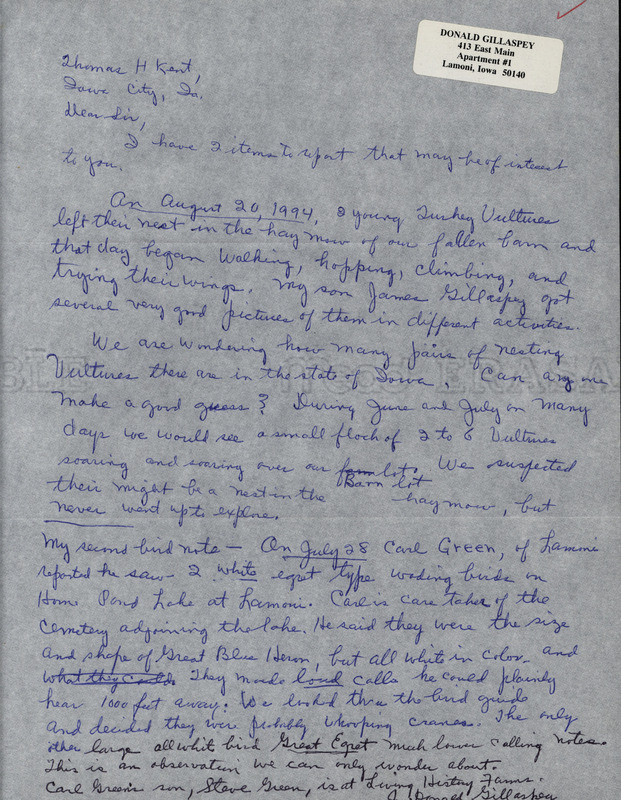 DONALD GILLASPEY
413 East Main
Apartment #1
Lamoni, Iowa 50140
Thomas H Kent,
Iowa City, Ia.
Dear Sir,
I have 2 items to report that may be of interest
to you.
On August 20, 1994, 2 young Turkey Vultures
left their nest in the hay mow of our fallen barn and
that day began walking, hopping, climbing, and
trying their wings. My son James Gillaspey got
several very good pictures of them in different activities.
We are wondering how many pairs of nesting
Vultures there are in the state of Iowa. Can any one
make a good guess? During June and July on many
days we would see a small flock of 2 to 6 Vultures
soaring and soaring over our farm lot. We suspected
Barn lot
their might be a nest in the hay mow, but
never went up to explore.
My second bird note - On July 28 Carl Green, of Lamoni
reported he saw 2 white egret type wading birds on
Home Pond Lake at Lamoni. Carl is care taker of the
cemetery adjoining the lake. He said they were the size
and shape of Great Blue Heron, but all white in color and
what they could. They made loud calls he could plainly
hear 1000 feet away. We looked thru the bird guide
and decided they were probably whooping cranes. The only
other large all white bird Great Egret much lower calling notes.
This is an observation we can only wonder about.
Carl Green's son, Steve Green, is at Living History Farms.
J. Donald Gillaspey